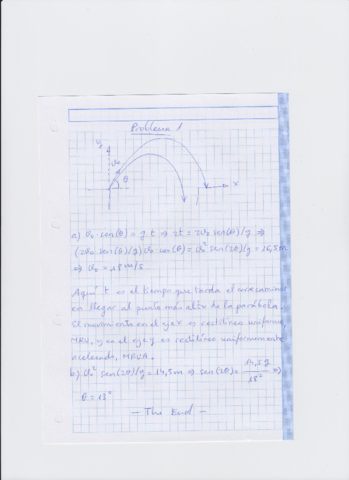 Problema 1
y
v₀
θ
x
a) v₀ · sen(θ) = g t ⇒ 2t = 2v₀ sen(θ)/g ⇒
(2v₀ sen(θ)/g) v₀ cos(θ) = v₀² sen(2θ)/g = 26,5m
⇒ v₀ = 18 m/s
Aquí t es el tiempo que tarda el
en llegar al punto más alto de la parábola.
El movimiento en el eje x es rectilíneo uniforme,
MRU, y en el eje y es rectilíneo uniformemente
acelerado, MRUA.
b) v₀² sen(2θ)/g = 14,5m ⇒ sen(2θ) = 14,5 g / 18² ⇒
θ = 13°
— The End —